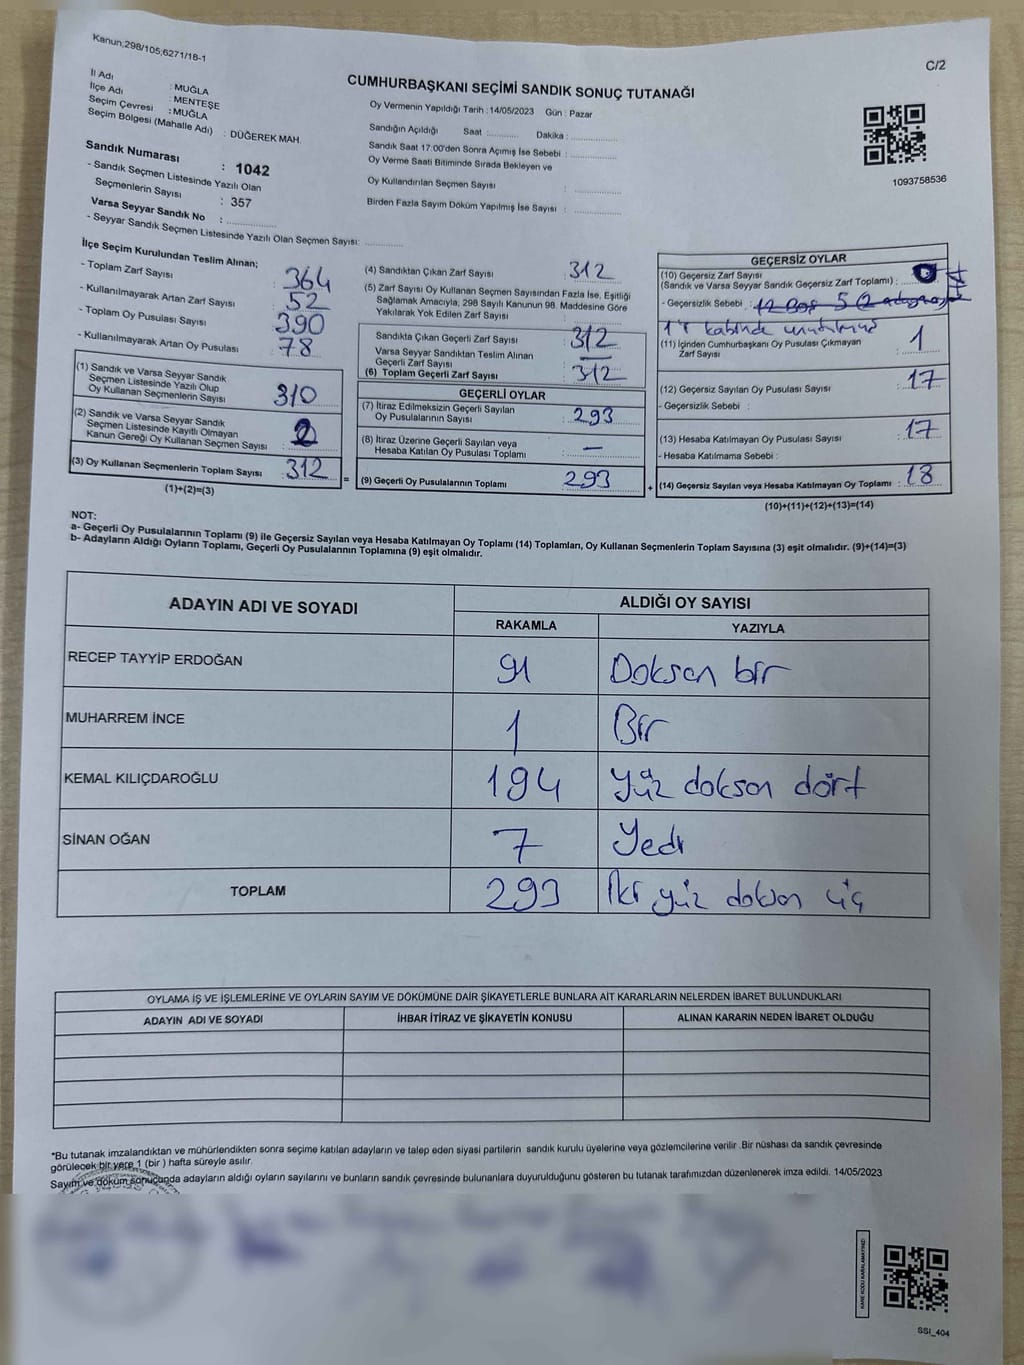 Kanun;298/105;6271/18-1
C/2
CUMHURBAŞKANI SEÇİMİ SANDIK SONUÇ TUTANAĞI
İl Adı : MUĞLA
İlçe Adı : MENTEŞE
Seçim Çevresi : MUĞLA
Seçim Bölgesi (Mahalle Adı) : DÜĞEREK MAH.
Sandık Numarası : 1042
- Sandık Seçmen Listesinde Yazılı Olan
Seçmenlerin Sayısı : 357
Varsa Seyyar Sandık No : ..............
- Seyyar Sandık Seçmen Listesinde Yazılı Olan Seçmen Sayısı: ............
Oy Vermenin Yapıldığı Tarih : 14/05/2023 Gün : Pazar
Sandığın Açıldığı Saat :.......... Dakika :..............
Sandık Saat 17:00'den Sonra Açımış İse Sebebi : ..............
Oy Verme Saati Bitiminde Sırada Bekleyen ve
Oy Kullandırılan Seçmen Sayısı : ..............
Birden Fazla Sayım Döküm Yapılmış İse Sayısı : ..............
1093758536
İlçe Seçim Kurulundan Teslim Alınan;
- Toplam Zarf Sayısı 364
- Kullanılmayarak Artan Zarf Sayısı 52
- Toplam Oy Pusulası Sayısı 390
- Kullanılmayarak Artan Oy Pusulası 78
(1) Sandık ve Varsa Seyyar Sandık
Seçmen Listesinde Yazılı Olup
Oy Kullanan Seçmenlerin Sayısı 310
(2) Sandık ve Varsa Seyyar Sandık
Seçmen Listesinde Kayıtlı Olmayan
Kanun Gereği Oy Kullanan Seçmen Sayısı : 2
(3) Oy Kullanan Seçmenlerin Toplam Sayısı 312
(1)+(2)=(3)
(4) Sandıktan Çıkan Zarf Sayısı : 312
(5) Zarf Sayısı Oy Kullanan Seçmen Sayısından Fazla İse, Eşitliği
Sağlamak Amacıyla, 298 Sayılı Kanunun 98. Maddesine Göre
Yakılarak Yok Edilen Zarf Sayısı :
Sandıkta Çıkan Geçerli Zarf Sayısı : 312
Varsa Seyyar Sandıktan Teslim Alınan
Geçerli Zarf Sayısı : —
(6) Toplam Geçerli Zarf Sayısı : 312
GEÇERLİ OYLAR
(7) İtiraz Edilmeksizin Geçerli Sayılan
Oy Pusulalarının Sayısı : 293
(8) İtiraz Üzerine Geçerli Sayılan veya
Hesaba Katılan Oy Pusulası Toplamı : —
(9) Geçerli Oy Pusulalarının Toplamı : 293
=
+
GEÇERSİZ OYLAR
(10) Geçersiz Zarf Sayısı
(Sandık ve Varsa Seyyar Sandık Geçersiz Zarf Toplamı) : 0
- Geçersizlik Sebebi : 12 Boş 5 (2
1'i kabinde unutulmuş
(11) İçinden Cumhurbaşkanı Oy Pusulası Çıkmayan
Zarf Sayısı : 1
(12) Geçersiz Sayılan Oy Pusulası Sayısı : 17
- Geçersizlik Sebebi :
(13) Hesaba Katılmayan Oy Pusulası Sayısı : 17
- Hesaba Katılmama Sebebi :
(14) Geçersiz Sayılan veya Hesaba Katılmayan Oy Toplamı : 18
(10)+(11)+(12)+(13)=(14)
NOT:
a- Geçerli Oy Pusulalarının Toplamı (9) ile Geçersiz Sayılan veya Hesaba Katılmayan Oy Toplamı (14) Toplamları, Oy Kullanan Seçmenlerin Toplam Sayısına (3) eşit olmalıdır. (9)+(14)=(3)
b- Adayların Aldığı Oyların Toplamı, Geçerli Oy Pusulalarının Toplamına (9) eşit olmalıdır.
ADAYIN ADI VE SOYADI ALDIĞI OY SAYISI
RAKAMLA YAZIYLA
RECEP TAYYİP ERDOĞAN 91 Doksan bir
MUHARREM İNCE 1 Bir
KEMAL KILIÇDAROĞLU 194 Yüz doksan dört
SİNAN OĞAN 7 Yedi
TOPLAM 293 İki yüz doksan üç
OYLAMA İŞ VE İŞLEMLERİNE VE OYLARIN SAYIM VE DÖKÜMÜNE DAİR ŞİKAYETLERLE BUNLARA AİT KARARLARIN NELERDEN İBARET BULUNDUKLARI
ADAYIN ADI VE SOYADI İHBAR İTİRAZ VE ŞİKAYETİN KONUSU ALINAN KARARIN NEDEN İBARET OLDUĞU
*Bu tutanak imzalandıktan ve mühürlendikten sonra seçime katılan adayların ve talep eden siyasi partilerin sandık kurulu üyelerine veya gözlemcilerine verilir .Bir nüshası da sandık çevresinde
görülecek bir yere 1 (bir ) hafta süreyle asılır.
Sayım ve döküm sonucunda adayların aldığı oyların sayılarını ve bunların sandık çevresinde bulunanlara duyurulduğunu gösteren bu tutanak tarafımızdan düzenlenerek imza edildi. 14/05/2023
KARE KODU KARALAMAYINIZ!
SSI_404